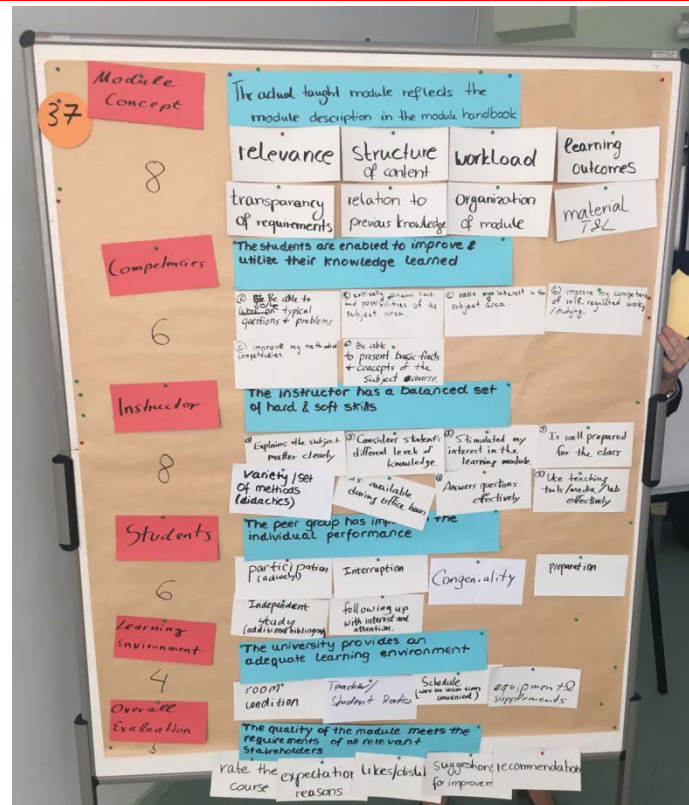 Module
Concept
37
8
The actual taught module reflects the
module description in the module handbook
relevance
structure
of content
workload
learning
outcomes
transparancy
of requirements
relation to
previous knowledge
Organization
of module
material
T&L
Competencies
6
The students are enabled to improve &
utilize their knowledge learned
Be able to
typical
questions + problems
and possibilities of the
subject area.
raise my interest in the
subject area.
improve my competency
of self-regulated work/
studying.
improve my
competencies.
Be able
to present basic facts
+ concepts of the
subject course.
Instructor
8
The instructor has a balanced set
of hard & soft skills
Explains the subject
matter clearly
Considers student's
different levels of
knowledge.
Stimulated my
interest in the
learning module
Is well prepared
for the class
Variety/set
of methods
(didactics)
Is available
during office hours
Answers questions
effectively
Use teaching
tools/media/lab
effectively
Students
6
The peer group has the
individual performance
participation
(actively)
Interruption
Congeniality
preparation
Independent
study
(additional
following up
with interest and
attention.
Learning
Environment
4
The university provides an
adequate learning environment
room
condition
Teacher/
Student Ratio
Schedule
(were the lesson times
convenient)
equipment &
supplements
Overall
Evaluation
5
The quality of the module meets the
requirements of all relevant
stakeholders
rate the
course
expectation
reasons
likes/
suggestions
for improvem
recommendation